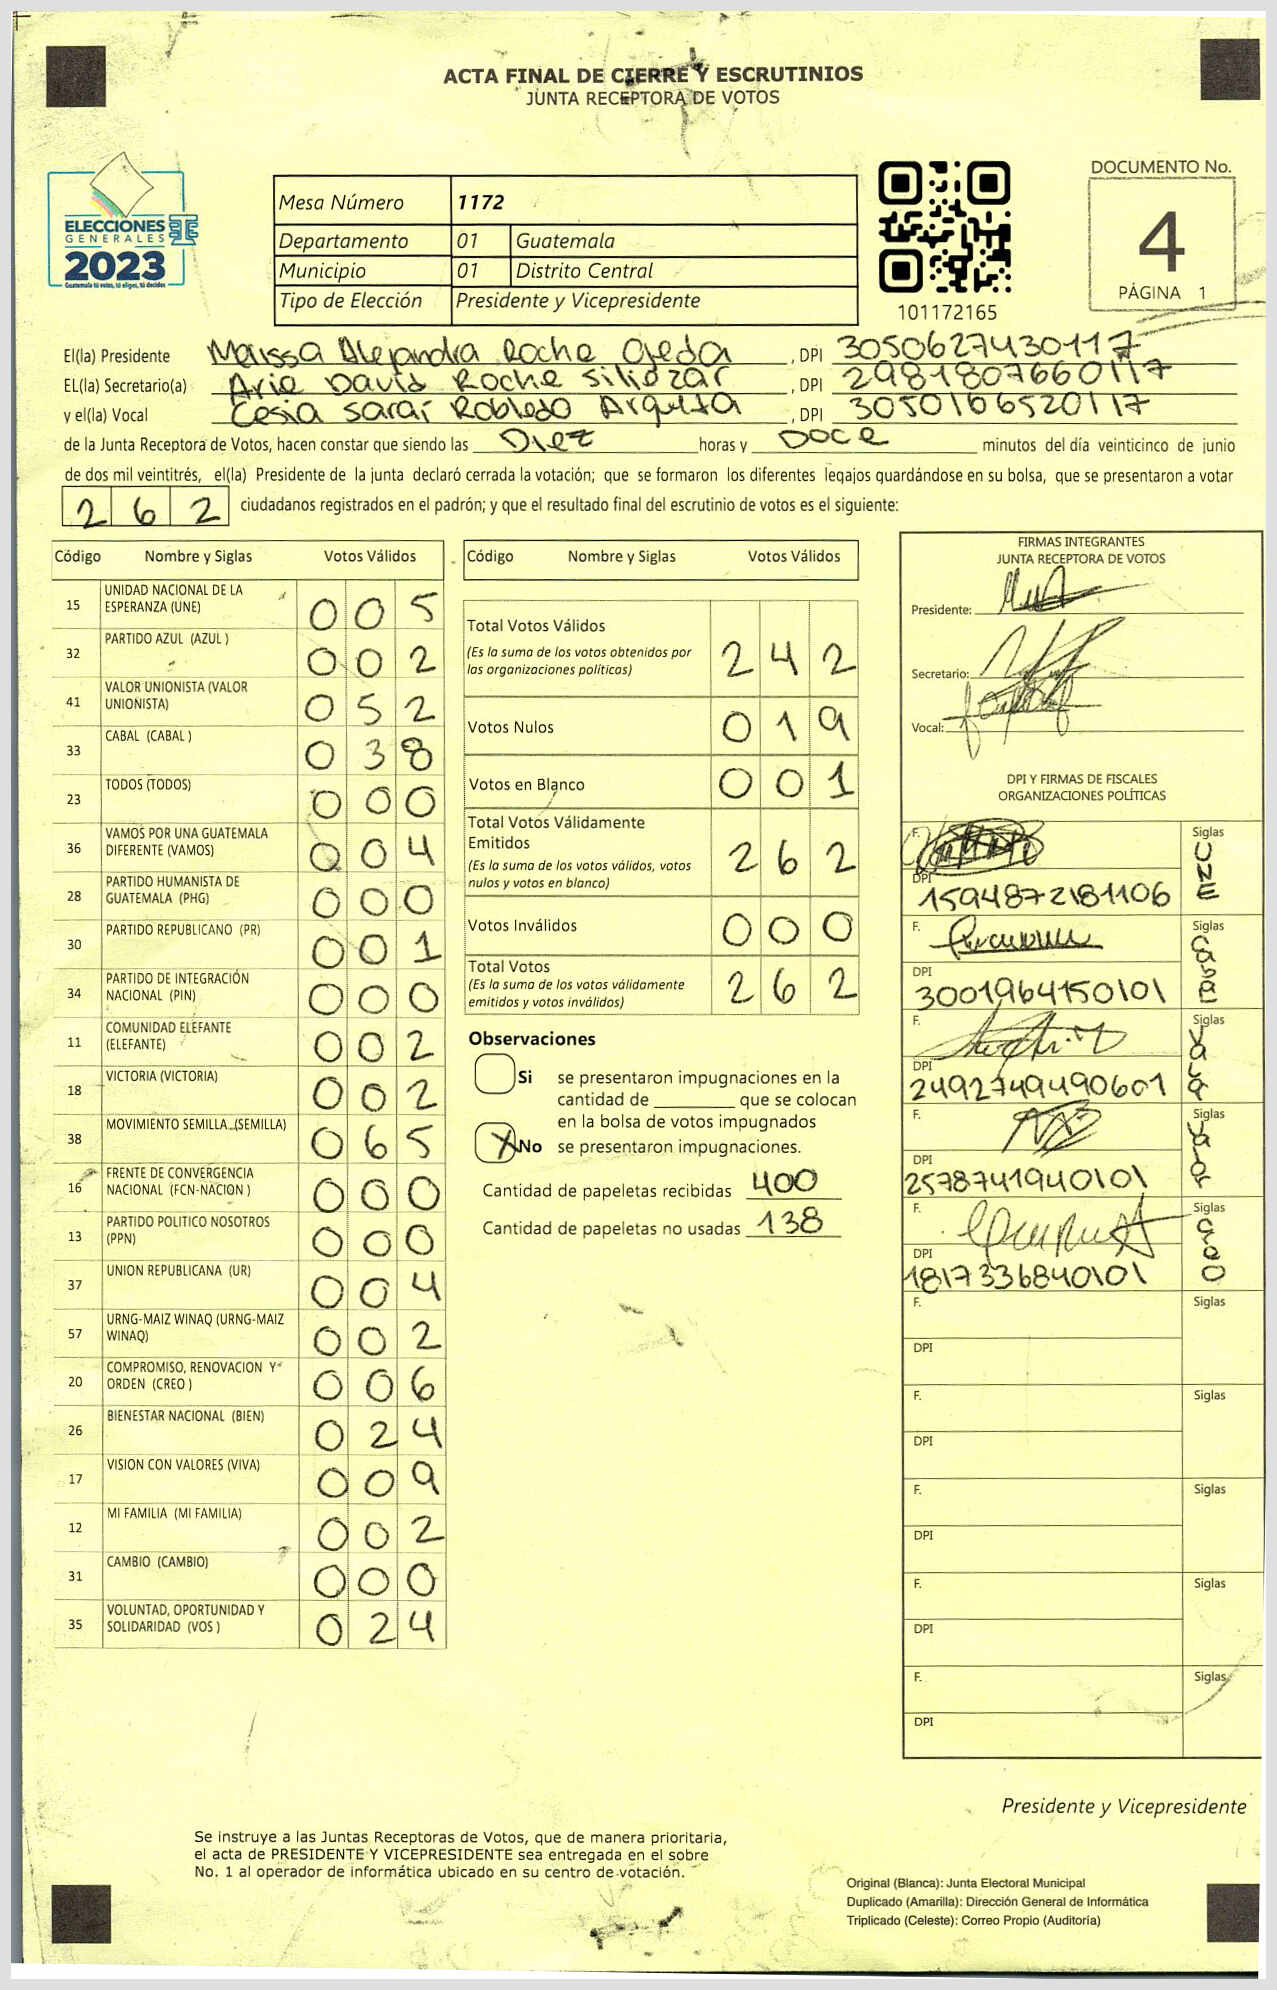 ACTA FINAL DE CIERRE Y ESCRUTINIOS
JUNTA RECEPTORA DE VOTOS
ELECCIONES
GENERALES
2023
Guatemala tú votas, tú eliges, tú decides
Mesa Número 1172
Departamento 01 Guatemala
Municipio 01 Distrito Central
Tipo de Elección Presidente y Vicepresidente
101172165
DOCUMENTO No.
4
PÁGINA 1
El(la) Presidente Maissa Alejandra Roche Ojeda , DPI 3050627430117
EL(la) Secretario(a) Arie David Roche Siliezar , DPI 2981807660117
y el(la) Vocal Cesia Saraí Robledo Argueta , DPI 3050166520117
de la Junta Receptora de Votos, hacen constar que siendo las Diez horas y Doce minutos del día veinticinco de junio
de dos mil veintitrés, el(la) Presidente de la junta declaró cerrada la votación; que se formaron los diferentes legajos guardándose en su bolsa, que se presentaron a votar
262 ciudadanos registrados en el padrón; y que el resultado final del escrutinio de votos es el siguiente:
Código Nombre y Siglas Votos Válidos
15 UNIDAD NACIONAL DE LA
ESPERANZA (UNE) 005
32 PARTIDO AZUL (AZUL ) 002
41 VALOR UNIONISTA (VALOR
UNIONISTA) 052
33 CABAL (CABAL ) 038
23 TODOS (TODOS) 000
36 VAMOS POR UNA GUATEMALA
DIFERENTE (VAMOS) 004
28 PARTIDO HUMANISTA DE
GUATEMALA (PHG) 000
30 PARTIDO REPUBLICANO (PR) 001
34 PARTIDO DE INTEGRACIÓN
NACIONAL (PIN) 000
11 COMUNIDAD ELEFANTE
(ELEFANTE) 002
18 VICTORIA (VICTORIA) 002
38 MOVIMIENTO SEMILLA (SEMILLA) 065
16 FRENTE DE CONVERGENCIA
NACIONAL (FCN-NACION ) 000
13 PARTIDO POLITICO NOSOTROS
(PPN) 000
37 UNION REPUBLICANA (UR) 004
57 URNG-MAIZ WINAQ (URNG-MAIZ
WINAQ) 002
20 COMPROMISO, RENOVACION Y
ORDEN (CREO ) 006
26 BIENESTAR NACIONAL (BIEN) 024
17 VISION CON VALORES (VIVA) 009
12 MI FAMILIA (MI FAMILIA) 002
31 CAMBIO (CAMBIO) 000
35 VOLUNTAD, OPORTUNIDAD Y
SOLIDARIDAD (VOS ) 024
Código Nombre y Siglas Votos Válidos
Total Votos Válidos
(Es la suma de los votos obtenidos por
las organizaciones políticas) 242
Votos Nulos 019
Votos en Blanco 001
Total Votos Válidamente
Emitidos
(Es la suma de los votos válidos, votos
nulos y votos en blanco) 262
Votos Inválidos 000
Total Votos
(Es la suma de los votos válidamente
emitidos y votos inválidos) 262
Observaciones
Si se presentaron impugnaciones en la
cantidad de ________ que se colocan
en la bolsa de votos impugnados
X No se presentaron impugnaciones.
Cantidad de papeletas recibidas 400
Cantidad de papeletas no usadas 138
FIRMAS INTEGRANTES
JUNTA RECEPTORA DE VOTOS
Presidente:
Secretario:
Vocal:
DPI Y FIRMAS DE FISCALES
ORGANIZACIONES POLÍTICAS
F. Siglas UNE
DPI 1594872181106
F. Siglas Cabal
DPI 3001964150101
F. Siglas
DPI 2492749490601
F. Siglas Valor
DPI 2578741940101
F. Siglas Creo
DPI 1817336840101
F. Siglas
DPI
F. Siglas
DPI
F. Siglas
DPI
F. Siglas
DPI
F. Siglas
DPI
Presidente y Vicepresidente
Se instruye a las Juntas Receptoras de Votos, que de manera prioritaria,
el acta de PRESIDENTE Y VICEPRESIDENTE sea entregada en el sobre
No. 1 al operador de informática ubicado en su centro de votación.
Original (Blanca): Junta Electoral Municipal
Duplicado (Amarilla): Dirección General de Informática
Triplicado (Celeste): Correo Propio (Auditoría)